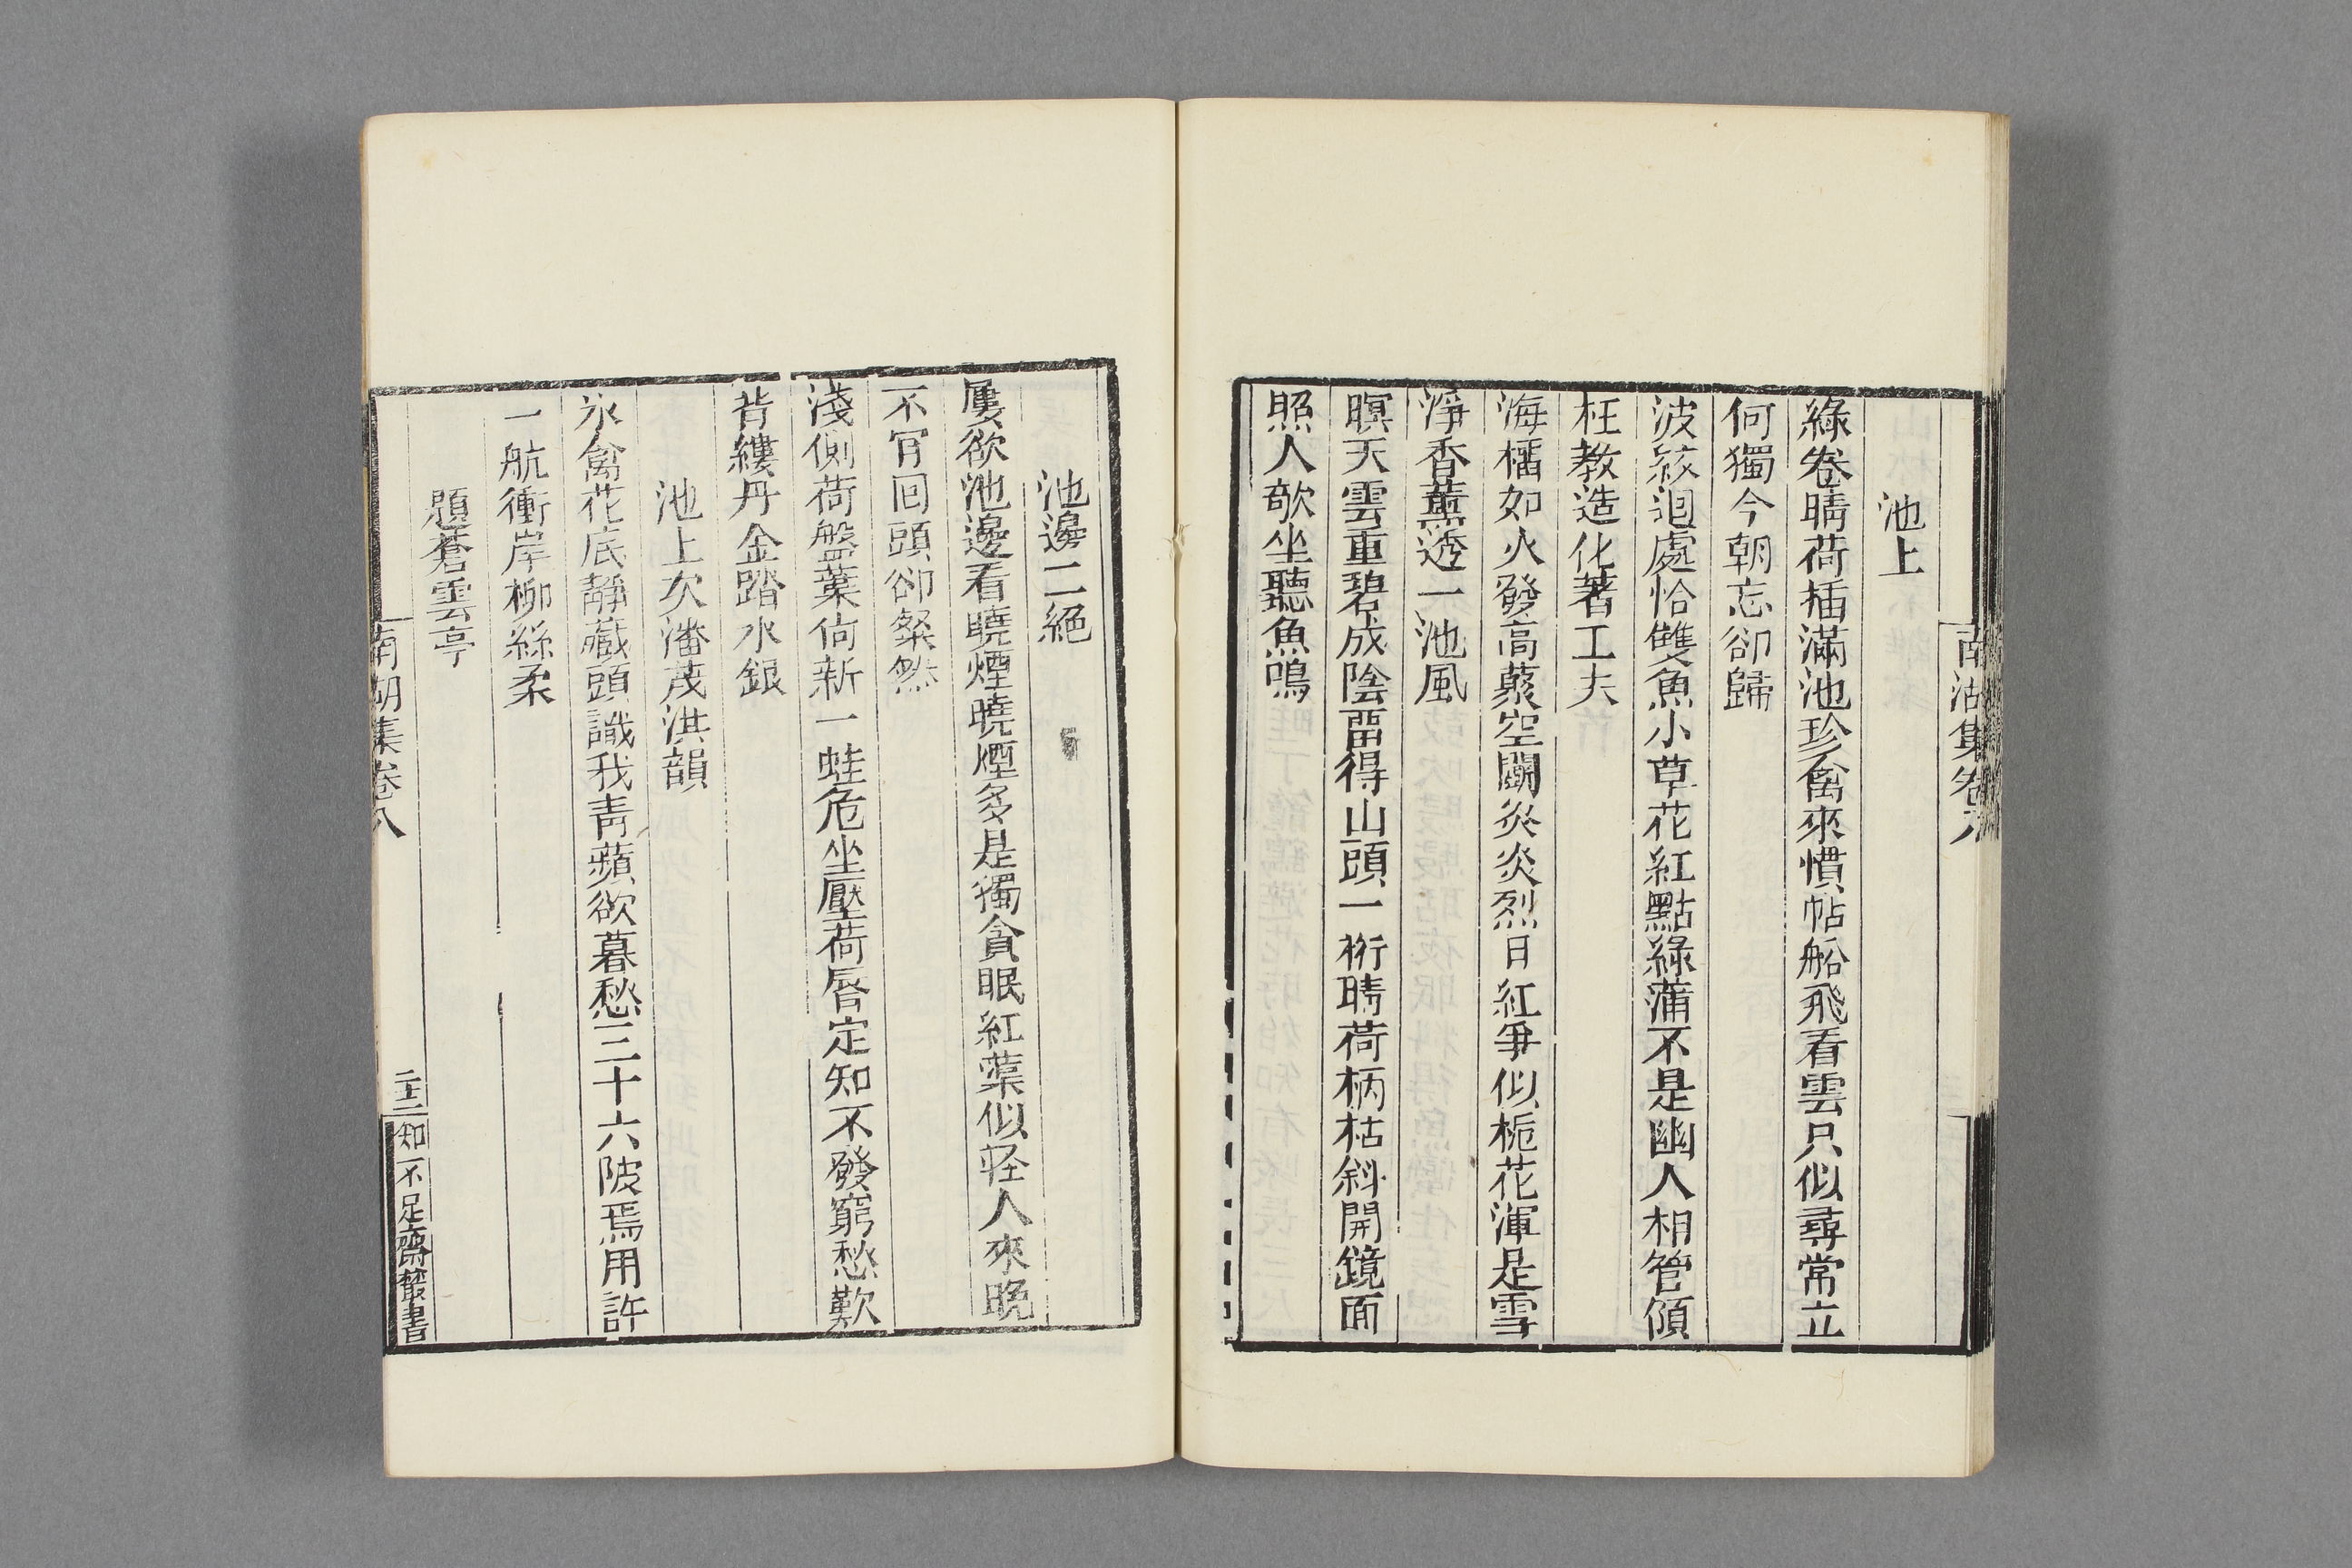 南湖集卷八
池上
綠卷晴荷插滿池珍禽來慣帖船飛看雲只似尋常立
何獨今朝忘卻歸
波紋迴處恰雙魚小草花紅點綠蒲不是幽人相管傾
枉教造化著工夫
海櫺如火發高蕞空鬭炎炎烈日紅爭似栀花渾是雪
淨香薰透一池風
暝天雲重碧成陰畱得山頭一桁晴荷柄枯斜開鏡面
照人欹坐聽魚鳴
池邊二絕
屢欲池邊看曉煙曉煙多是獨貪眠紅葉似怪人來晚
不肎回頭卻粲然
淺側荷盤葉尙新一蛙危坐壓荷脣定知不發窮愁歎
背縷丹金踏水銀
池上次潘茂洪韻
水禽花底靜藏頭識我靑蘋欲暮愁三十六陂焉用許
一航衝岸柳絲柔
題蒼雲亭
南湖集卷八
二十二
知不足齋叢書